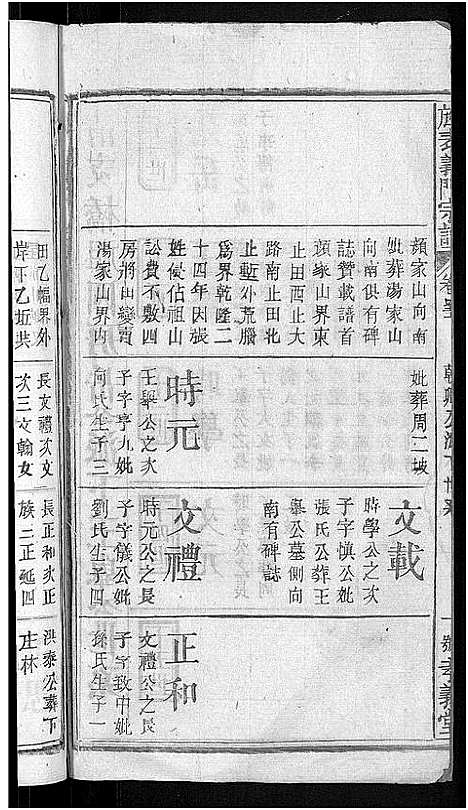 旌表義門宗譜
卷
孝義堂
顏家山向南
妣葬湯家山
向南俱有碑
誌贊載譜首
顏家山界東
止田西止大
路南止田北
止塹外荒腦
爲界乾隆二
十四年因張
姓侵佔祖山
訟費不敷四
房將田變賣
湯家山界內
妣葬周二坡
時元
王舉公之次
子字亨九妣
向氏生子三
文載
時學公之次
子字慎公妣
張氏公葬王
舉公墓側向
南有碑誌
文禮
時元公之長
子字儀公妣
劉氏生子四
正和
文禮公之長
子字致中妣
孫氏生子一
田乙幅界外
岸下乙坵共
長文禮次文
次三文翰女
長正和次正
族三正延四
洪泰公葬下
庄林